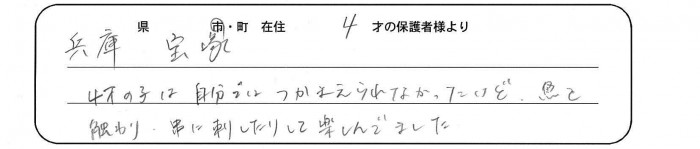 兵庫 県 宝塚 市・町 在住 4 才の保護者様より
4才の子は自分ではつかまえられなかったけど、魚を
触わり、串に刺したりして楽しんでました